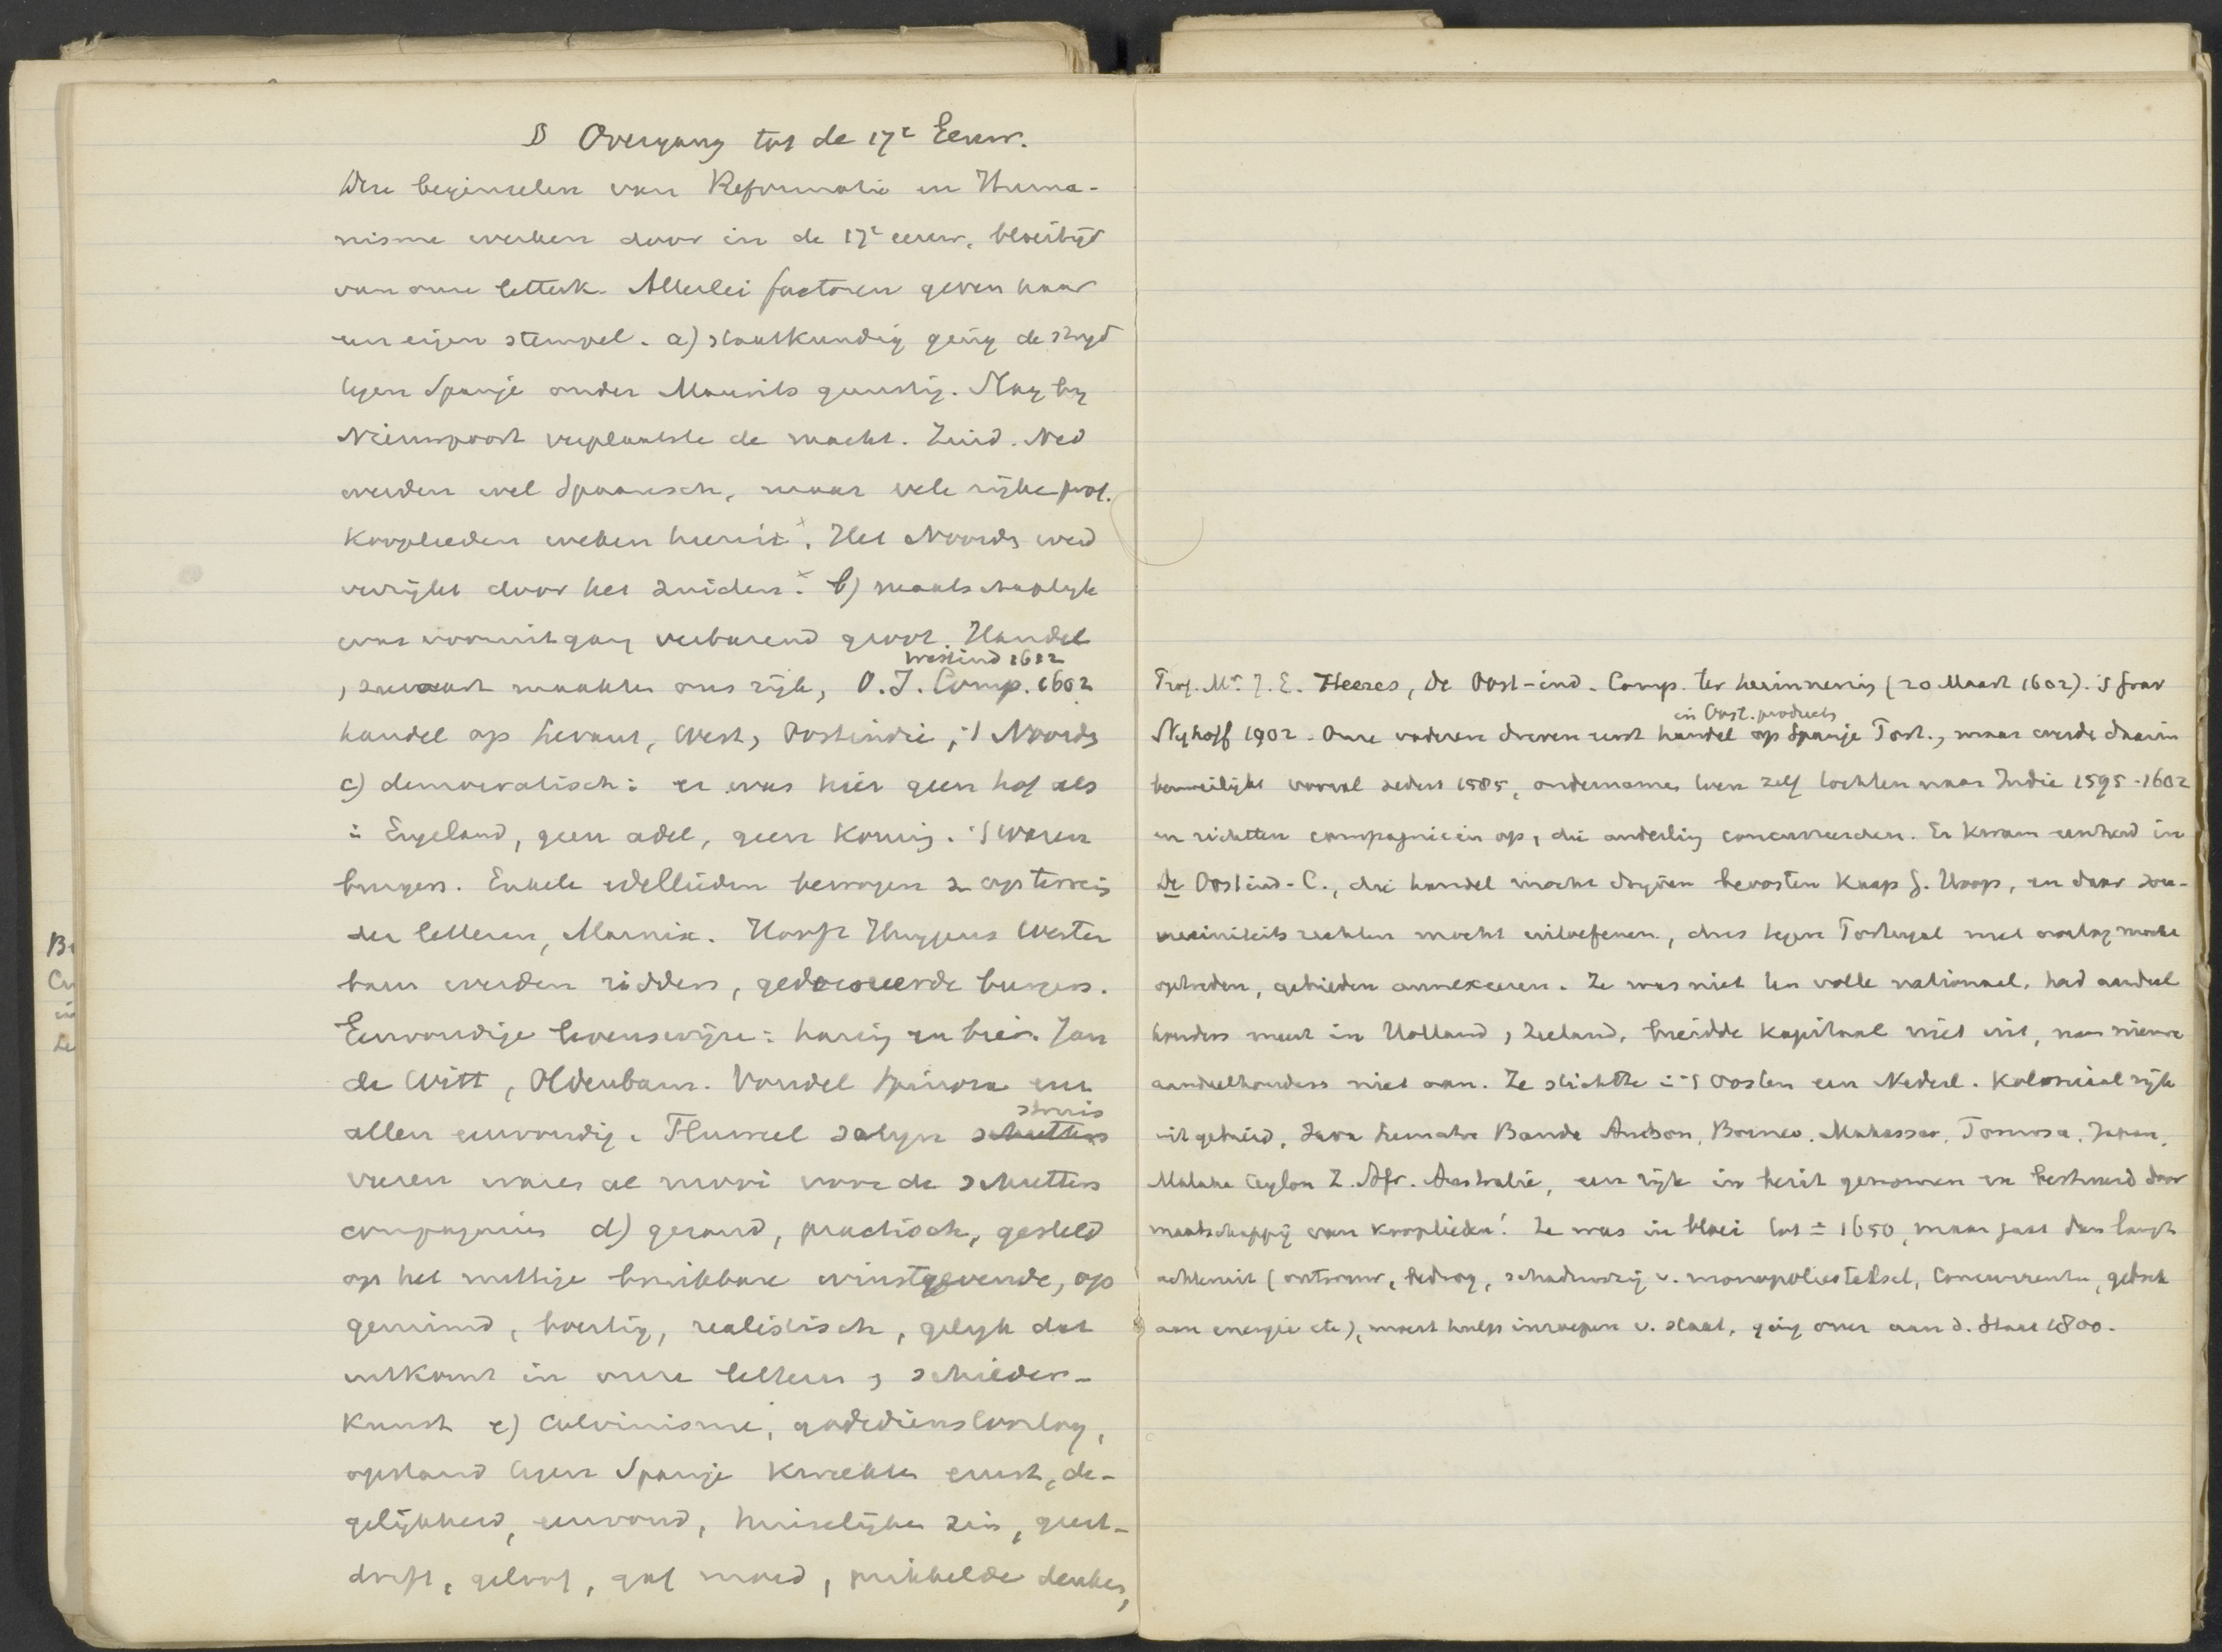 B Overgang tot de 17e Eeuw.
Deze beginselen van Reformatie en Huma-
nisme werken door in de 17e eeuw, bloeitijd
van onze letterk. Allerlei factoren geven haar
een eigen stempel. a) staatkundig ging de strijd
tegen Spanje onder Maurits gunstig. Slag bij
Nieuwpoort verplaatste de macht. Zuid. Ned
werden wel Spaansch, maar vele rijke prot.
Kooplieden weken hierin x. Het Noorden werd
verrijkt door het zuiden x. b) maatschaplyk
was vooruitgang verbazend groot. Handel
westind 1612
, zeevaart maakten ons rijk, O.I. Comp. 1602
handel op Levant, West, Oostindie, 't Noorden
c) democratisch: er was hier geen hof als
in Engeland, geen adel, geen Koning. 't waren
burgers. Enkele edellieden bewogen z. op terrein
der letteren, Marnix. Hooft Huygens Wester
baen werden ridders, gedecoreerde burgers.
Eenvoudige levenswijze: haring en brei. Jan
de Witt, Oldenbarn. Vondel Spinoza een
struis
allen eenvoudig. Fluweel satijn schutters
veren waren al mooi voor de schutters
compagnies d) gezond, practisch, gesteld
op het nuttige bruikbare winstgevende, op
gezind, boertig, realistisch, gelyk dat
uitkomt in onze letteren , schilder-
Kunst e) Calvinisme, godsdienstoorlog,
opstand tegen Spanje kweekten ernst, de-
gelijkheid, eenvoud, huiselijken zin, geest-
drift, geloof, gaf moed, prikkelde denken,
Prof. Mr. J. E. Heeres, De Oost-ind. Comp. ter herinnering (20 Maart 1602). 's Grav
in Oost. products
Nyhoff 1902. Onze vaderen dreven eerst handel op Spanje Port., maar werde daarin
bemoeilijkt vooral sedert 1585, ondernamen toen zelf tochten naar Indië 1595-1602
en richtten compagnieën op, die onderling concurreerden. Er kwam eenheid in
De Oostind-C., die handel mocht drijven beoosten Kaap G. Hoop, en daar sou-
vereiniteits rechten mocht uitoefenen, dus tegen Portugal met oorlog mocht
optreden, gebieden annexeeren. Ze was niet ten volle nationaal, had aandeel
houders meest in Holland, Zeeland, breidde Kapitaal niet uit, nam nieuwe
aandeelhouders niet aan. Ze stichtte in 't Oosten een Nederl. Koloniaal rijk
uitgebreid, Java Sumatra Banda Ambon, Borneo, Makassar, Formosa, Japan,
Malaka Ceylon Z. Afr. Australië, een rijk in bezit genomen en bestuurd door
maatschappij van Kooplieden! Ze was in bloei tot ± 1650, maar gaat dan langz
achteruit (ontrouw, bedrog, schaduwzij v. monopoliestelsel, Concurrentie, gebrek
aan energie etc), moest hulp inroepen v. staat, ging over aan d. Staat 1800.